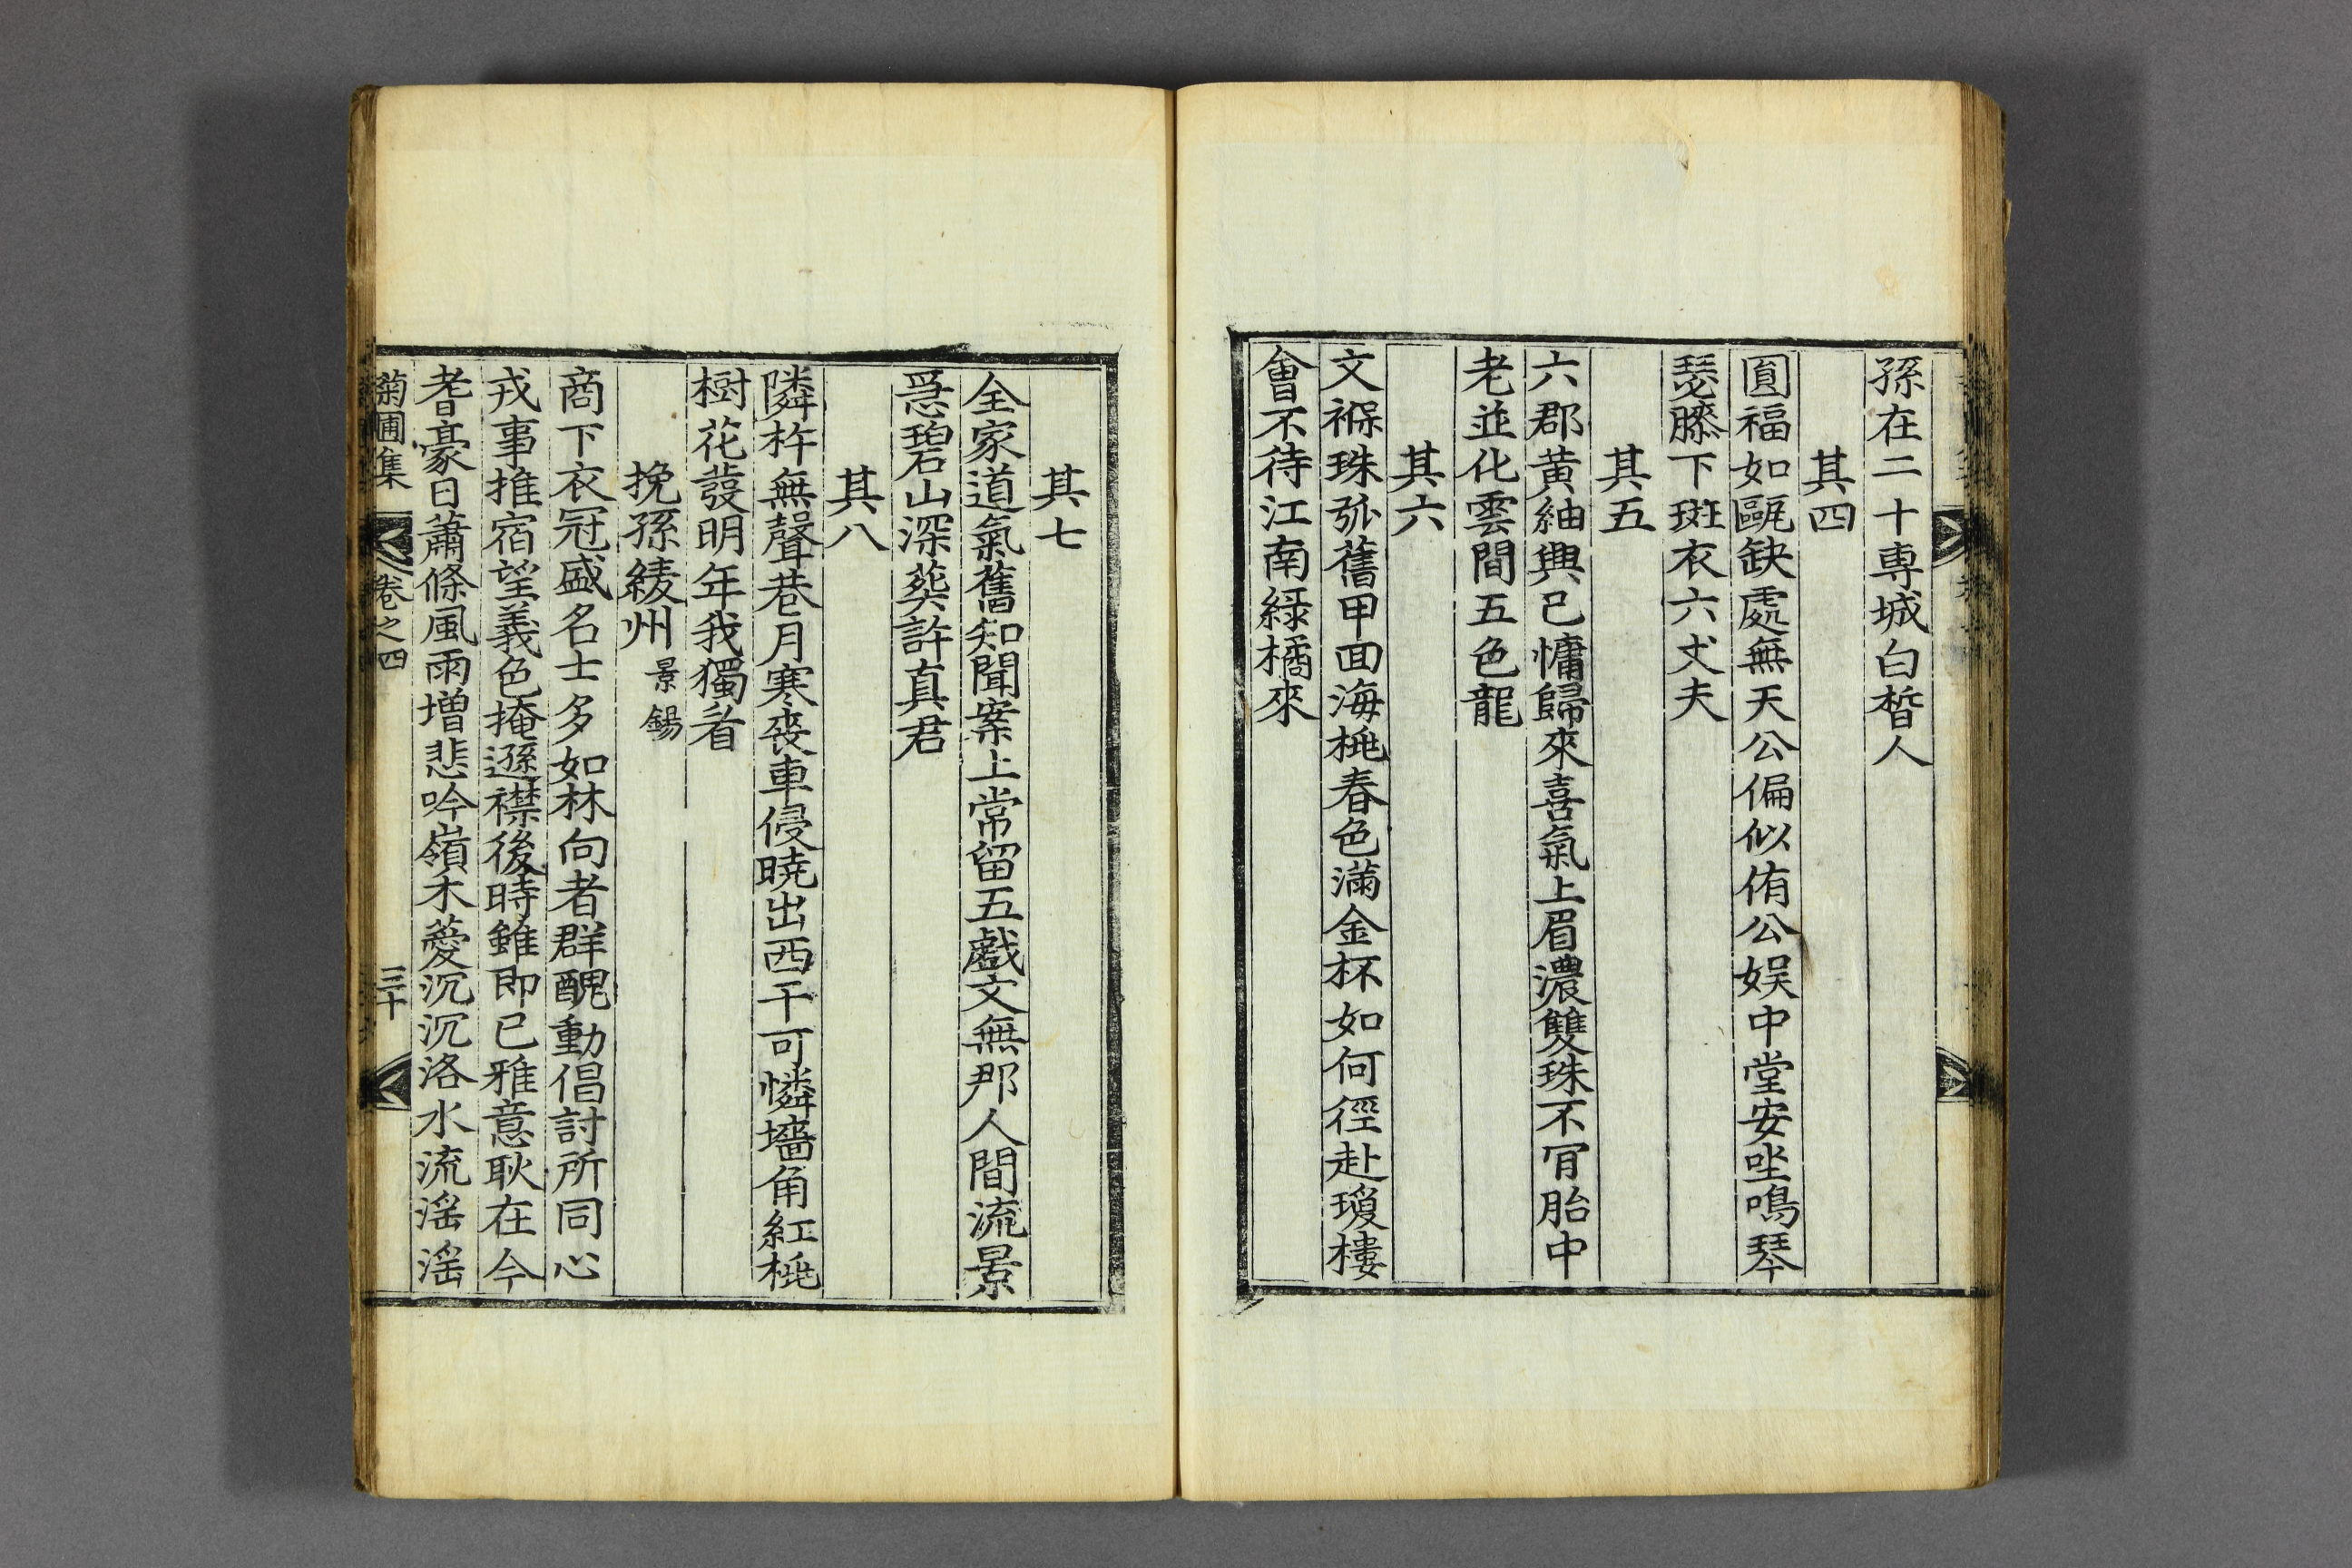 孫在二十專城白晳人
其四
圓福如甌缺處無天公偏似侑公娱中堂安坐鳴琴
瑟膝下斑衣六丈夫
其五
六郡黄紬興已慵歸來喜氣上眉濃雙珠不肎胎中
老並化雲間五色龍
其六
文褓珠弧舊甲回海桃春色滿金杯如何徑赴瓊樓
會不待江南綠橘來
其七
全家道氣舊知聞案上常留五戲文無那人間流景
惎碧山深葬許真君
其八
隣杵無聲巷月寒喪車侵曉出西干可憐墻角紅桃
樹花發明年我獨看
挽孫綾州 景錫
商下衣冠盛名士多如林向者群醜動倡討所同心
戎事推宿望義色掩遜襟後時雖即已雅意耿在今
耆豪日蕭條風雨增悲吟嶺木薆沉沉洛水流滛滛
菊圃集 卷之四 三十